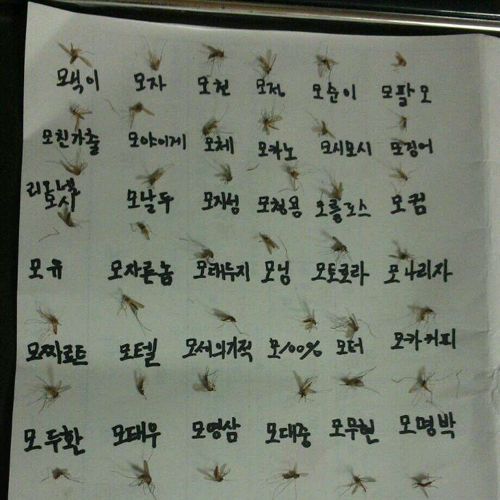 모빅이 모자 모헌 모정 모순이 모팔모
모친가출 모야이게 모체 모카노 모시모시 모징어
리오넬모시 모날두 모지성 모청용 모를로스 모컴
모유 모자른놈 모태두지 모닝 모토로라 모나리자
모짜르트 모텔 모세의기적 모100% 모더 모카커피
모두환 모태우 모영삼 모대중 모무현 모명박